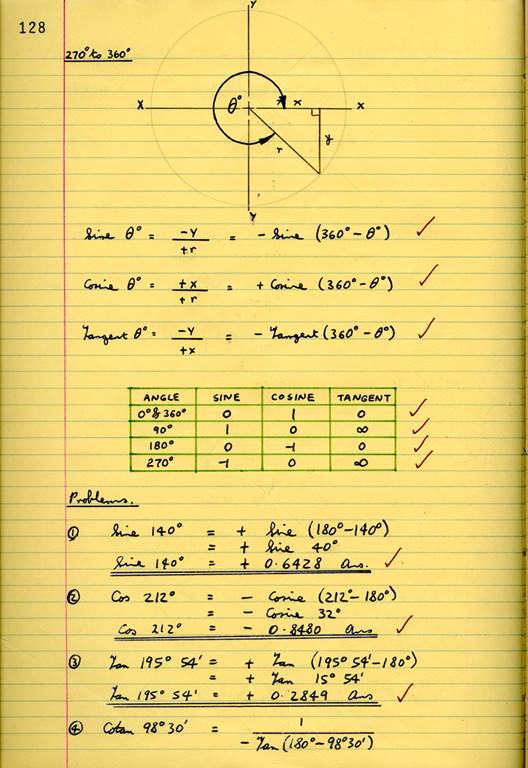 128
270° to 360°
Y
X θ° x x
r y
Y
Sine θ° = -Y / +r = - Sine (360° - θ°) ✓
Cosine θ° = +x / +r = + Cosine (360° - θ°) ✓
Tangent θ° = -Y / +x = - Tangent (360° - θ°) ✓
ANGLE SINE COSINE TANGENT
0° & 360° 0 1 0 ✓
90° 1 0 ∞ ✓
180° 0 -1 0 ✓
270° -1 0 ∞ ✓
Problems.
① Sine 140° = + Sine (180° - 140°)
= + Sine 40°
Sine 140° = + 0.6428 Ans. ✓
② Cos 212° = - Cosine (212° - 180°)
= - Cosine 32°
Cos 212° = - 0.8480 Ans ✓
③ Tan 195° 54' = + Tan (195° 54' - 180°)
= + Tan 15° 54'
Tan 195° 54' = + 0.2849 Ans ✓
④ Cotan 98° 30' = 1 / - Tan (180° - 98° 30')